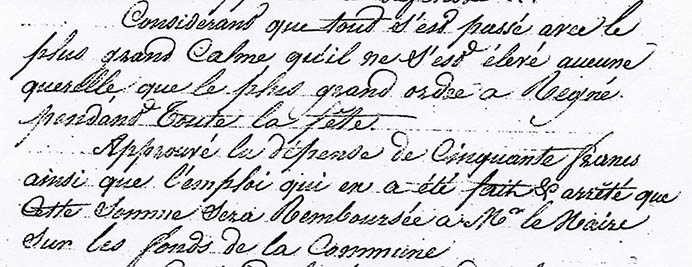 Considérant que tout s'est passé avec le
plus grand Calme, qu'il ne s'est élevé aucune
querelle, que le plus grand ordre a Régné
pendant Toute la fête.
Approuvé la dépense de Cinquante francs
ainsi que l'emploi qui en a été fait & arrêté que
Cette Somme Sera Remboursée a Mr le Maire
Sur les fonds de la Commune